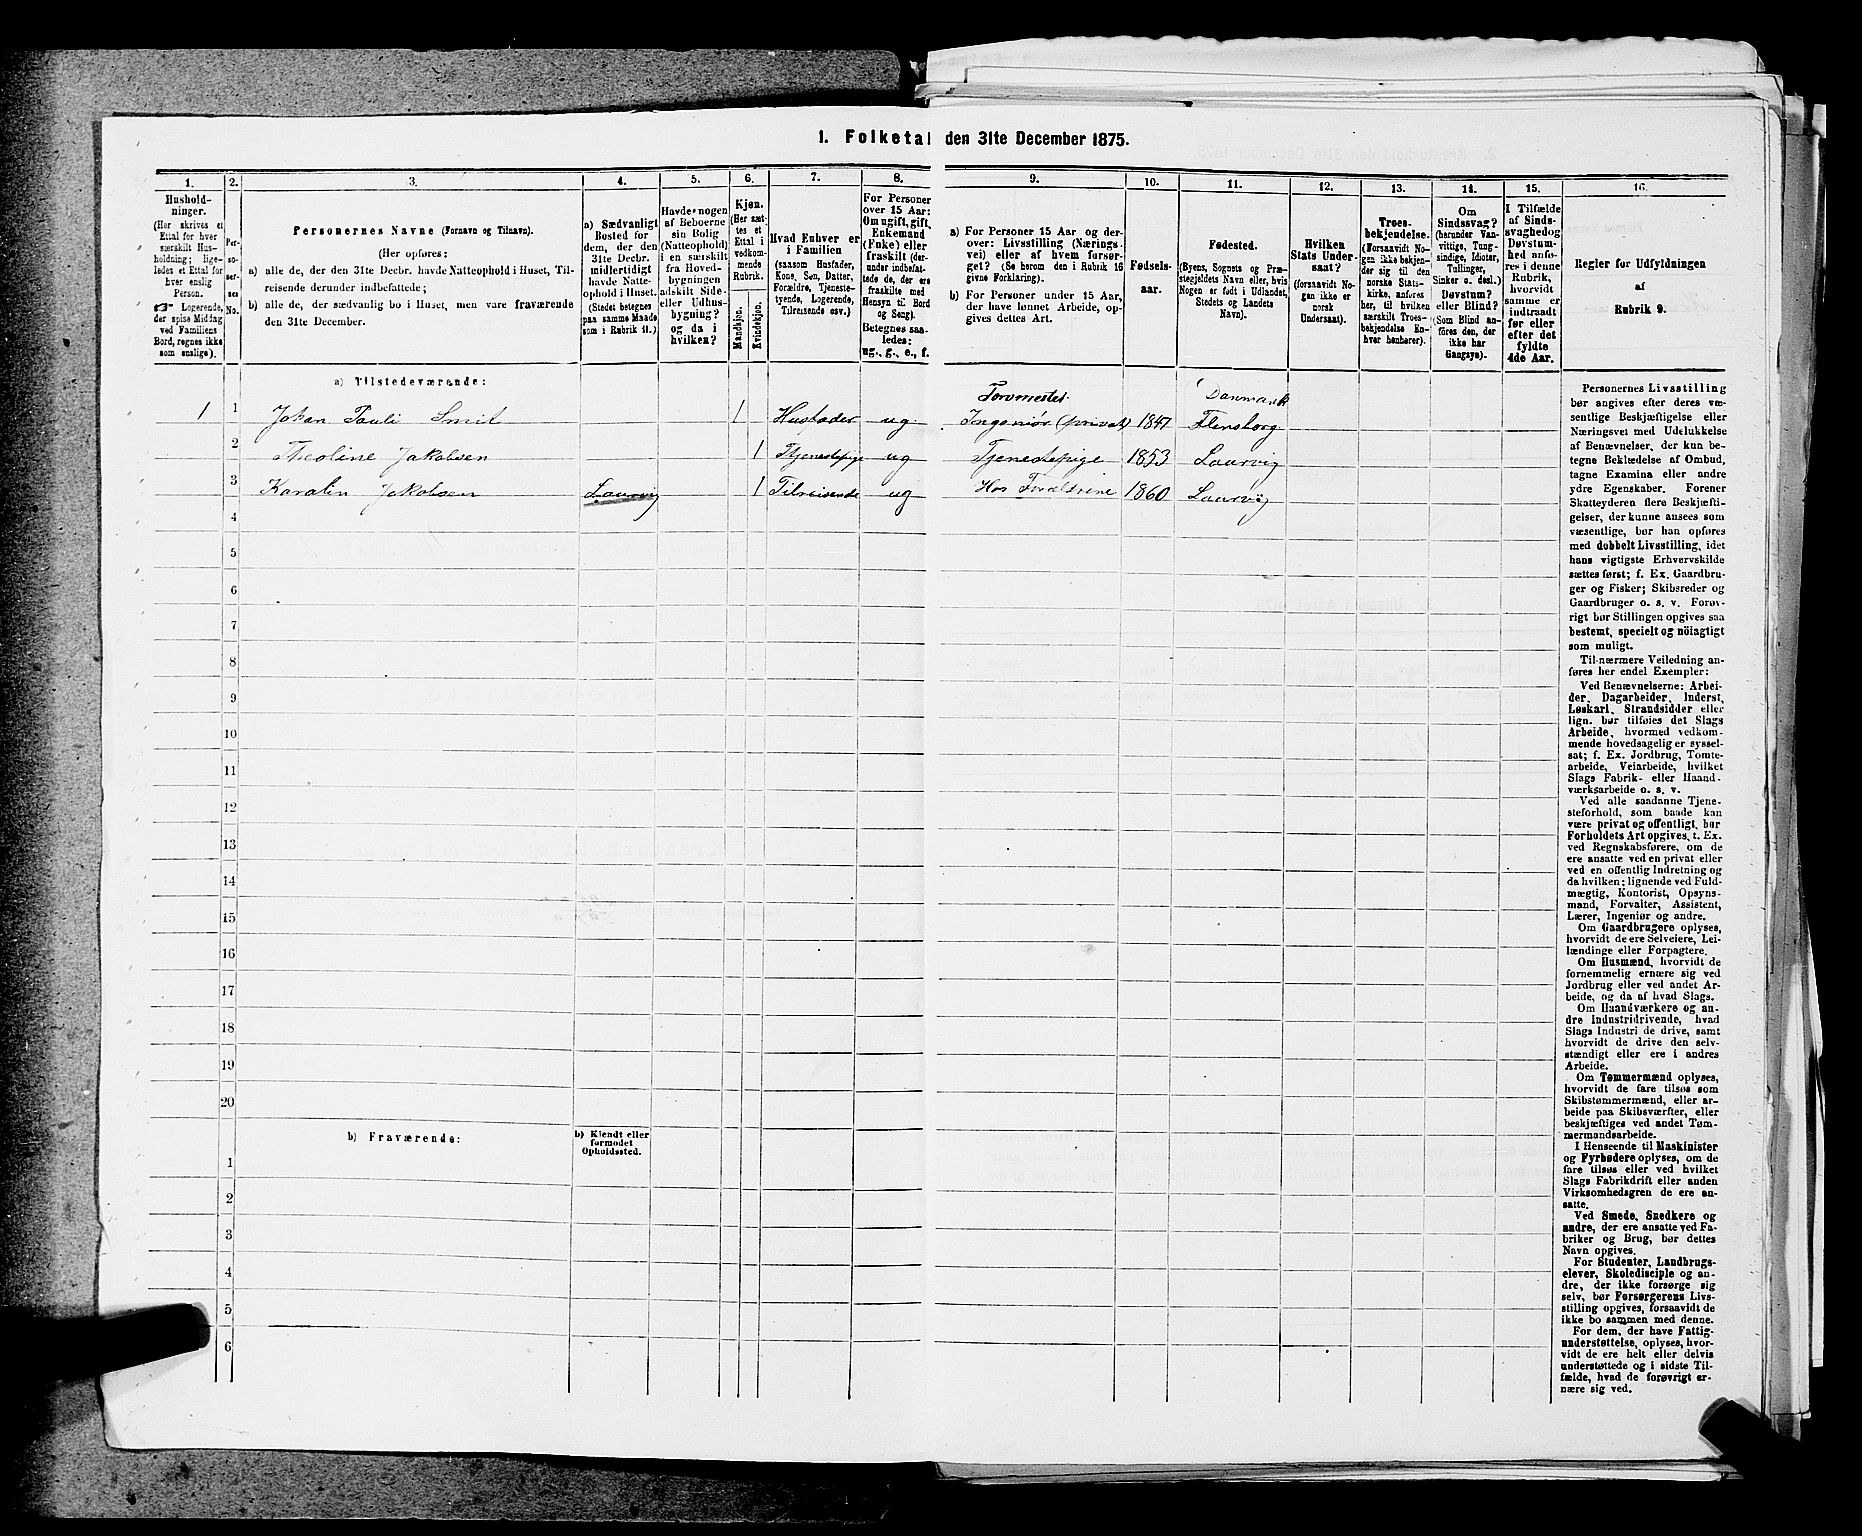 1. Folketal den 31te December 1875.
1.
2.
3.
4.
5.
6.
7.
8.
9.
10.
11.
12.
13.
14.
15.
16.
Hushold-
ninger.
(Her skrives et
Ettal for hver
særskilt Hus-
holdning; lige-
ledes et Ettal for
hver enslig
Person.
☞ Logerende,
der spise Middag
ved Familiens
Bord, regnes ikke
som enslige).
Per-
so-
ner-
nes
No.
Personernes Navne (Fornavn og Tilnavn).
(Her opføres:
a) alle de, der den 31te Decbr. havde Natteophold i Huset, Til-
reisende derunder indbefattede;
b) alle de, der sædvanlig bo i Huset, men vare fraværende
den 31te December.
a) Sædvanligt
Bosted for
dem, der den
31te Decbr.
midlertidigt
havde Natte-
ophold i Huset.
(Stedet betegnes
paa samme Maade
som i Rubrik 11.)
Havde nogen
af Beboerne
sin Bolig
(Natteophold)
i en særskilt
fra Hoved-
bygningen
adskilt Side-
eller Udhus-
bygning?
og da i
hvilken?
Kjøn.
(Her sæt-
tes et
Ettal i
vedkom-
mende
Rubrik.
Mandkjøn.
Kvindekjøn.
Hvad Enhver er
i Familien
(saasom Husfader,
Kone, Søn, Datter,
Forældre, Tjeneste-
tyende, Logerende,
Tilreisende osv.)
For Personer
over 15 Aar:
Om ugift, gift,
Enkemand
(Enke) eller
fraskilt (der-
under indbefat-
tede de, der ere
fraskilte med
Hensyn til Bord
og Seng).
Betegnes saa-
ledes:
ug., g., e., f.
a) For Personer 15 Aar og der-
over: Livsstilling (Nærings-
vei) eller af hvem forsør-
get? (Se herom den i Rubrik 16
givne Forklaring).
b) For Personer under 15 Aar,
der have lønnet Arbeide, op-
gives dettes Art.
Fødsels-
aar.
Fødested.
(Byens, Sognets og Præ-
stegjeldets Navn eller, hvis
Nogen er født i Udlandet,
Stedets og Landets
Navn).
Hvilken
Stats Under-
saat?
(forsaavidt No-
gen ikke er
norsk
Undersaat).
Troes-
bekjendelse.
(Forsaavidt No-
gen ikke bekjen-
der sig til den
norske Stats-
kirke, anføres
her, til hvilken
særskilt Troes-
bekjendelse En-
hver henhører).
Om
Sindssvag?
(herunder Van-
vittige, Tung-
sindige, Idioter,
Tullinger,
Sinker o. desl.)
Døvstum?
eller Blind?
(Som Blind an-
føres den, der
ikke har
Gangsyn).
I Tilfælde
af Sinds-
svaghed og
Døvstum-
hed anfø-
res i denne
Rubrik,
hvorvidt
samme er
indtraadt
før eller
efter det
fyldte
4de Aar.
Regler for Udfyldningen
af
Rubrik 9.
a) Tilstedeværende:
Danmark
1 1 Johan Pauli Smit 1 Husfader ug. Ingeniør (privat) 1847 Flensborg
2 Theoline Jakobsen 1 Tjenestepige ug Tjenestepige 1853 Laurvig
3 Karalin Jakobsen Laurvig 1 Tilreisende ug Hos Forældrene 1860 Laurvig
4
5
6
7
8
9
10
11
12
13
14
15
16
17
18
19
20
b) Fraværende:
b) Kjendt eller
formodet
Opholdssted.
1
2
3
4
5
6
Personernes Livsstilling
bør angives efter deres væ-
sentlige Beskjæftigelse eller
Næringsvei med Udelukkelse
af Benævnelser, der kun be-
tegne Beklædelse af Ombud,
tagne Examina eller andre
ydre Egenskaber. Forener
Skatteyderen flere Beskjæfti-
gelser, der kunne ansees som
væsentlige, bør han opføres
med dobbelt Livsstilling, idet
hans vigtigste Erhvervskilde
sættes først; f. Ex. Gaardbru-
ger og Fisker; Skibsreder og
Gaardbruger o. s. v. Forøv-
rigt bør Stillingen opgives saa
bestemt, specielt og nöiagtigt
som muligt.
Til nærmere Veiledning an-
føres her endel Exempler:
Ved Benævnelserne: Arbei-
der, Dagarbeider, Inderst,
Løskarl, Strandsidder eller
lign. bør tilføies det Slags
Arbeide, hvormed vedkom-
mende hovedsagelig er syssel-
sat; f. Ex. Jordbrug, Tomte-
arbeide, Veiarbeide, hvilket
Slags Fabrik- eller Haand-
værksarbeide o. s. v.
Ved alle saadanne Tjene-
steforhold, som baade kan
være privat og offentligt, bør
Forholdets Art opgives, t. Ex.
ved Regnskabsførere, om de
ere ansatte ved en privat eller
ved en offentlig Indretning og
da hvilken; lignende ved Fuld-
mægtig, Kontorist, Opsyns-
mand, Forvalter, Assistent,
Lærer, Ingeniør og andre.
Om Gaardbrugere oplyses,
hvorvidt de ere Selveiere, Lei-
lændinge eller Forpagtere.
Om Husmænd, hvorvidt de
fornemmelig ernære sig ved
Jordbrug eller ved andet Ar-
beide, og da af hvad Slags.
Om Haandværkere og an-
dre Industridrivende, hvad
Slags Industri de drive, samt
hvorvidt de drive den selv-
stændigt eller ere i andres
Arbeide.
Om Tømmermænd oplyses,
hvorvidt de fare tilsøs som
Skibstømmermænd, eller ar-
beide paa Skibsværfter, eller
beskjæftiges ved andet Tøm-
mermandsarbeide.
I Henseende til Maskinister
og Fyrbødere oplyses, om de
fare tilsøs eller ved hvilket
Slags Fabrikdrift eller anden
Virksomhedsgren de ere an-
satte.
Ved Smede, Snedkere og
andre, der ere ansatte ved Fa-
briker og Brug, bør dettes
Navn opgives.
For Studenter, Landbrugs-
elever, Skoledisciple og an-
dre, der ikke forsørge sig
selv, bør Forsørgerens Livs-
stilling opgives, forsaavidt de
ikke bo sammen med denne.
For dem, der have Fattig-
understøttelse, oplyses, hvor-
vidt de ere helt eller delvis
understøttede og i sidste Til-
fælde, hvad de forøvrigt er-
nære sig ved.